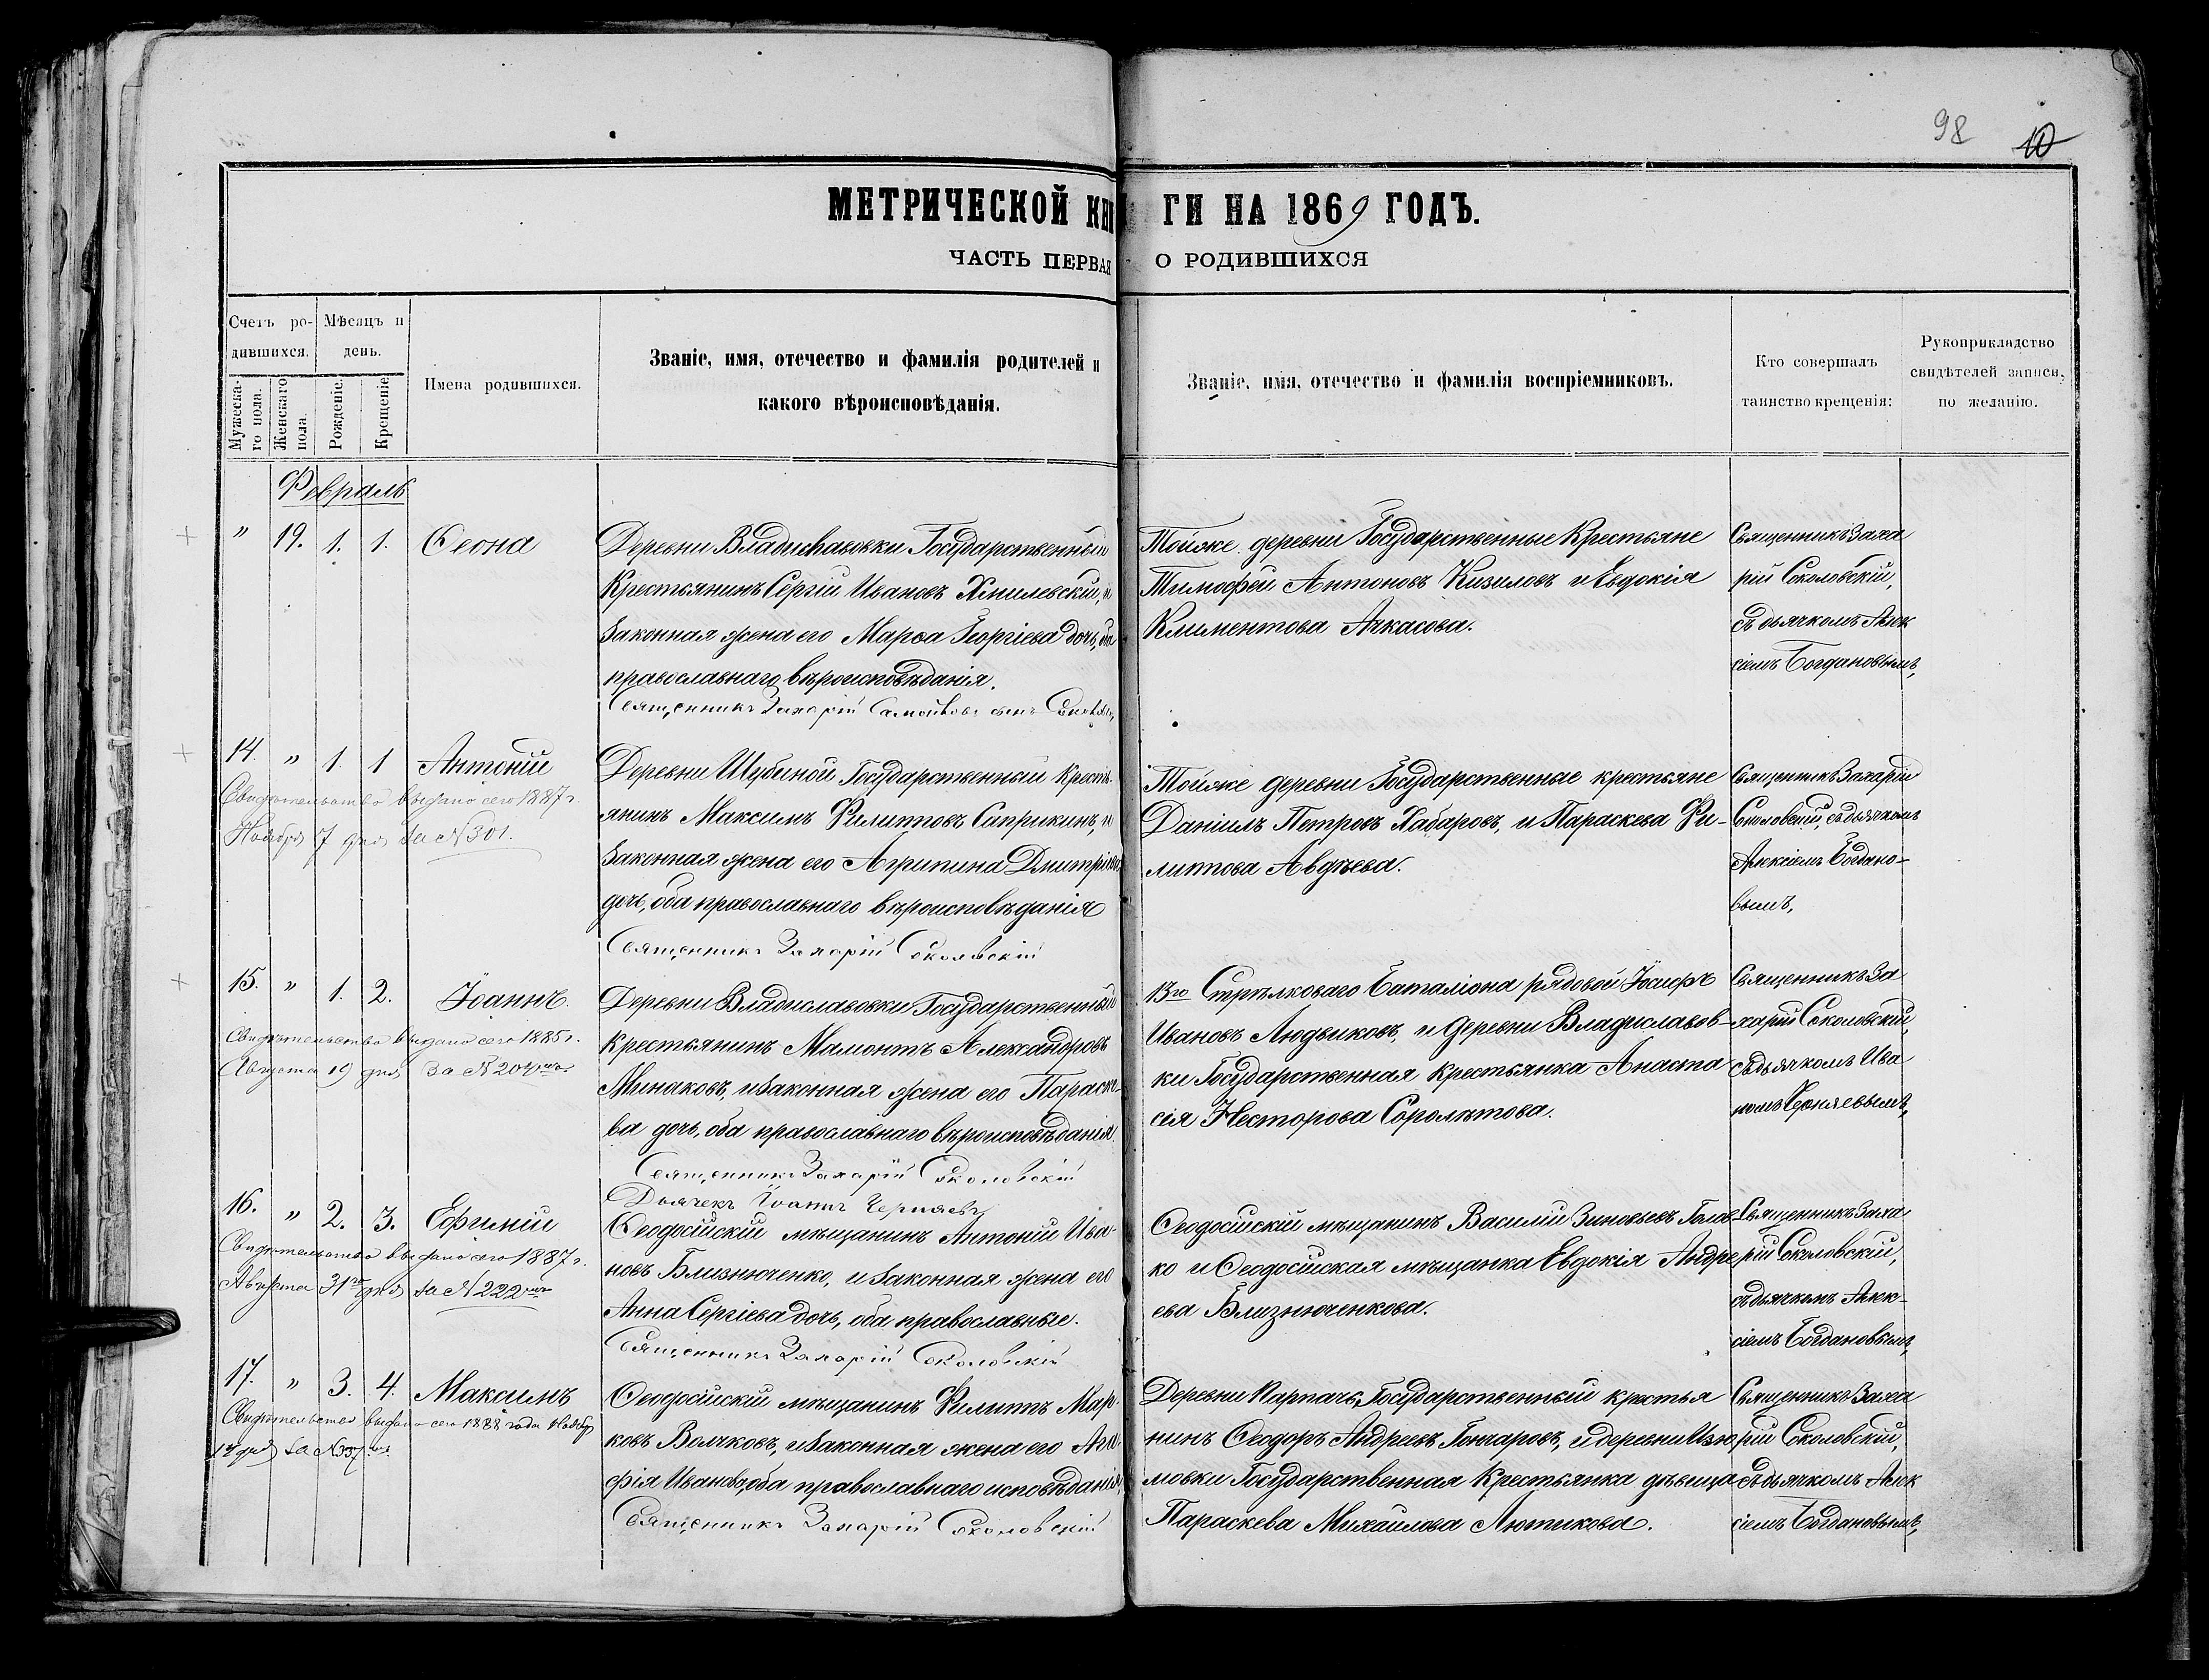 98 10
МЕТРИЧЕСКОЙ КНИГИ НА 1869 ГОДЪ.
ЧАСТЬ ПЕРВАЯ О РОДИВШИХСЯ
Счетъ ро-
дившихся.
Мужеска-
го пола.
Женскаго
пола.
Мѣсяцъ и
день.
Рожденіе.
Крещеніе.
Имена родившихся.
Званіе, имя, отечество и фамилія родителей и
какого вѣроисповѣданія.
Званіе, имя, отечество и фамилія воспріемниковъ.
Кто совершалъ
таинство крещенія:
Рукоприкладство
свидѣтелей записи,
по желанію.
Февраль
" 19. 1. 1. Ѳеона
Деревни Владиславовки Государственный
Крестьянинъ Сергій Ивановъ Хмилевскій, и
Законная жена его Марѳа Георгіева дочь, оба
православнаго вѣроисповѣданія.
Священникъ Захарій Самойловъ сынъ
Тойже деревни Государственные Крестьяне
Тимофей Антоновъ Кизиловъ и Евдокія
Климентова Ачкасова.
Священникъ Заха
рій Соколовскій,
съ дьячкомъ Алек
сіемъ Богдановымъ,
14. " 1. 1 Антоній
Свидѣтельство выдано сего 1887 г.
Ноября 7 дня за №301.
Деревни Шубиной Государственный Кресть-
янинъ Максимъ Филипповъ Саприкинъ, и
Законная жена его Агрипина Дмитріева
дочь, оба православнаго вѣроисповѣданія
Священникъ Захарій Соколовскій
Тойже деревни Государственные крестьяне
Даніилъ Петровъ Хабаровъ, и Параскева Фи-
липпова Авдѣева.
Священникъ Захарій
Соколовскій, съ дьячкомъ
Алексіемъ Богдано-
вымъ,
15. " 1. 2. Іоаннъ.
Свидѣтельство выдано сего 1885 г.
Августа 19 дня За № 204
Деревни Владиславовки Государственный
Крестьянинъ Мамонтъ Александровъ
Минаковъ, и Законная жена его Параске-
ва дочь, оба православнаго вѣроисповѣданія.
Священникъ Захарій Соколовскій
Дьячекъ Іоаннъ Черняевъ
13го Стрѣлковаго Баталіона рядовой Іосифъ
Ивановъ Людвиковъ, и Деревни Владиславов-
ки Государственная Крестьянка Анаста
сія Несторова Соролѣтова.
Священникъ За
харій Соколовскій,
съ дьячкомъ Ива
номъ Черняевымъ,
16. " 2. 3. Ефимій
Свидѣтельство выдано сего 1887 г.
Августа 31го дня за № 222
Ѳеодосійскій мѣщанинъ Антоній Ива-
новъ Близнюченко, и Законная жена его
Анна Сергіева дочь, оба православные.
Священникъ Захарій Соколовскій
Ѳеодосійскій мѣщанинъ Василій Зиновьевъ Голов
ко и Ѳеодосійская мѣщанка Евдокія Андре
ева Близнюченкова.
Священникъ Заха
рій Соколовскій,
съ дьячкомъ Алек-
сіемъ Богдановымъ,
17. " 3. 4. Максимъ
Свидѣтельство выдано сего 1888 года Ноября
17 дня за №
Ѳеодосійскій мѣщанинъ Филиппъ Мар-
ковъ Волчковъ, и Законная жена его Ага-
фія Иванова, оба православнаго исповѣданія,
Священникъ Захарій Соколовскій
Деревни Парпачъ, Государственный крестья
нинъ Ѳеодоръ Андреевъ Гончаровъ, и деревни Изю
мовки Государственная Крестьянка дѣвица
Параскева Михайлова Лютикова.
Священникъ Заха
рій Соколовскій,
съ дьячкомъ Алек
сіемъ Богдановымъ,